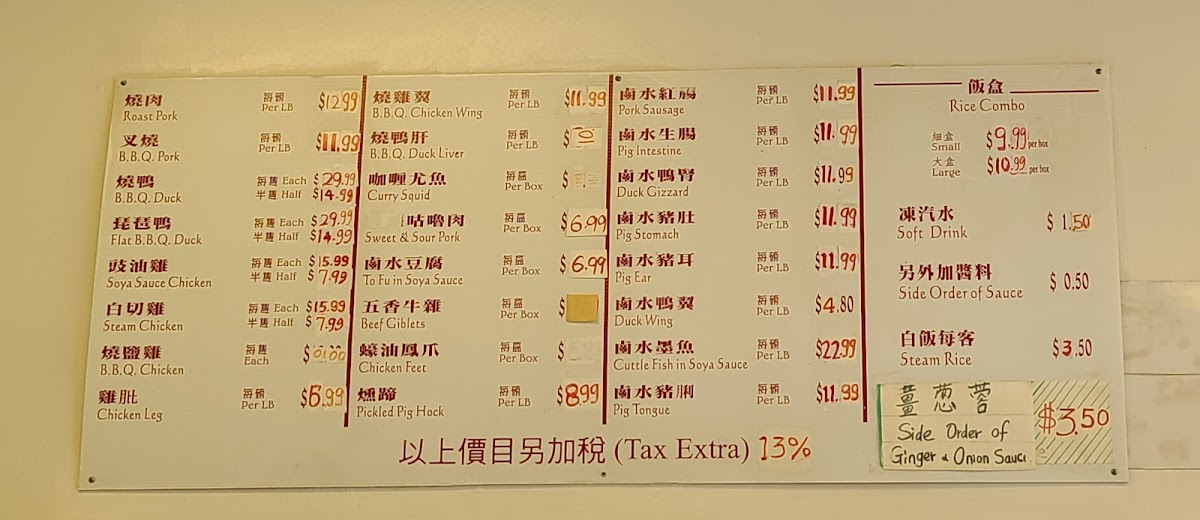 燒肉 每磅 $12.99
Roast Pork Per LB
叉燒 每磅 $11.99
B.B.Q. Pork Per LB
燒鴨 每隻 Each $29.99
B.B.Q. Duck 半隻 Half $14.99
琵琶鴨 每隻 Each $29.99
Flat B.B.Q. Duck 半隻 Half $14.99
豉油雞 每隻 Each $15.99
Soya Sauce Chicken 半隻 Half $7.99
白切雞 每隻 Each $15.99
Steam Chicken 半隻 Half $7.99
燒鹽雞 每隻 $
B.B.Q. Chicken Each
雞肶 每磅 $6.99
Chicken Leg Per LB
燒雞翼 每磅 $11.99
B.B.Q. Chicken Wing Per LB
燒鴨肝 每磅 $
B.B.Q. Duck Liver Per LB
咖喱尤魚 每盒 $
Curry Squid Per Box
咕嚕肉 每盒 $6.99
Sweet & Sour Pork Per Box
鹵水豆腐 每盒 $6.99
To Fu in Soya Sauce Per Box
五香牛雜 每盒 $
Beef Giblets Per Box
蠔油鳳爪 每盒 $
Chicken Feet Per Box
燻蹄 每磅 $8.99
Pickled Pig Hock Per LB
鹵水紅腸 每磅 $11.99
Pork Sausage Per LB
鹵水生腸 每磅 $11.99
Pig Intestine Per LB
鹵水鴨腎 每磅 $11.99
Duck Gizzard Per LB
鹵水豬肚 每磅 $11.99
Pig Stomach Per LB
鹵水豬耳 每磅 $11.99
Pig Ear Per LB
鹵水鴨翼 每磅 $4.80
Duck Wing Per LB
鹵水墨魚 每磅 $22.99
Cuttle Fish in Soya Sauce Per LB
鹵水豬脷 每磅 $11.99
Pig Tongue Per LB
飯盒
Rice Combo
細盒 $9.99 per box
Small
大盒 $10.99 per box
Large
凍汽水 $1.50
Soft Drink
另外加醬料 $0.50
Side Order of Sauce
白飯每客 $3.50
Steam Rice
薑葱蓉 $3.50
Side Order of
Ginger & Onion Sauce
以上價目另加稅 (Tax Extra) 13%